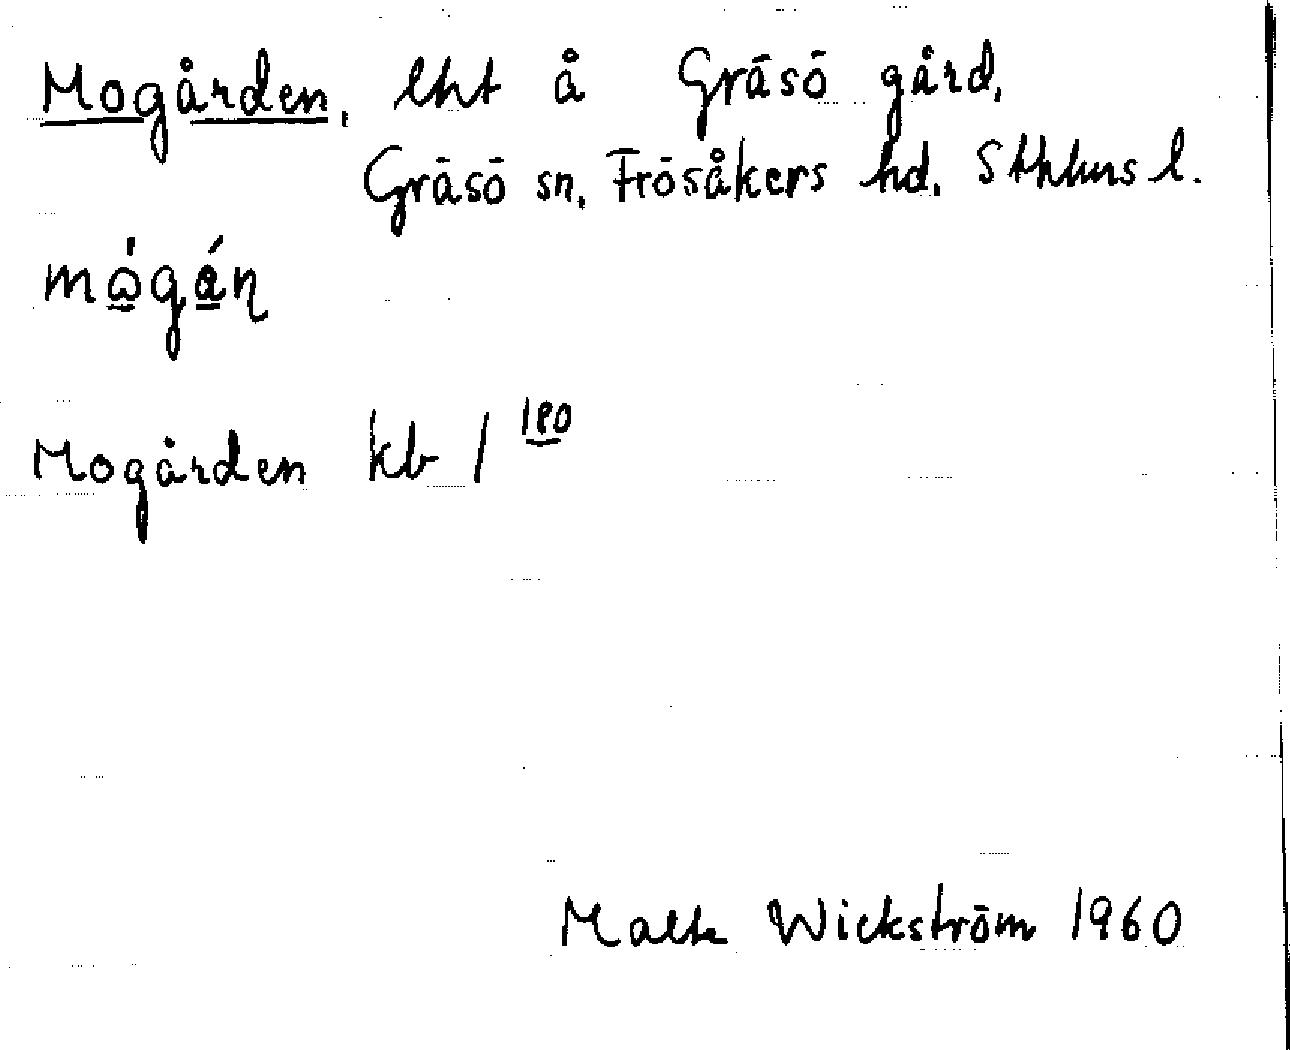 Mogården, lht å Gräsö gård,
Gräsö sn, Frösåkers hd, Sthlms l.
Mogården kb 1
Malte Wickström 1960